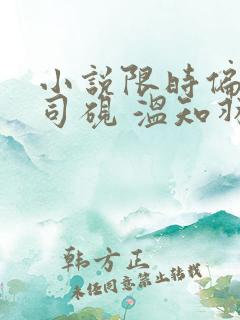 小說限時偏
司硯 溫知
韩方正
未经同意禁止转载